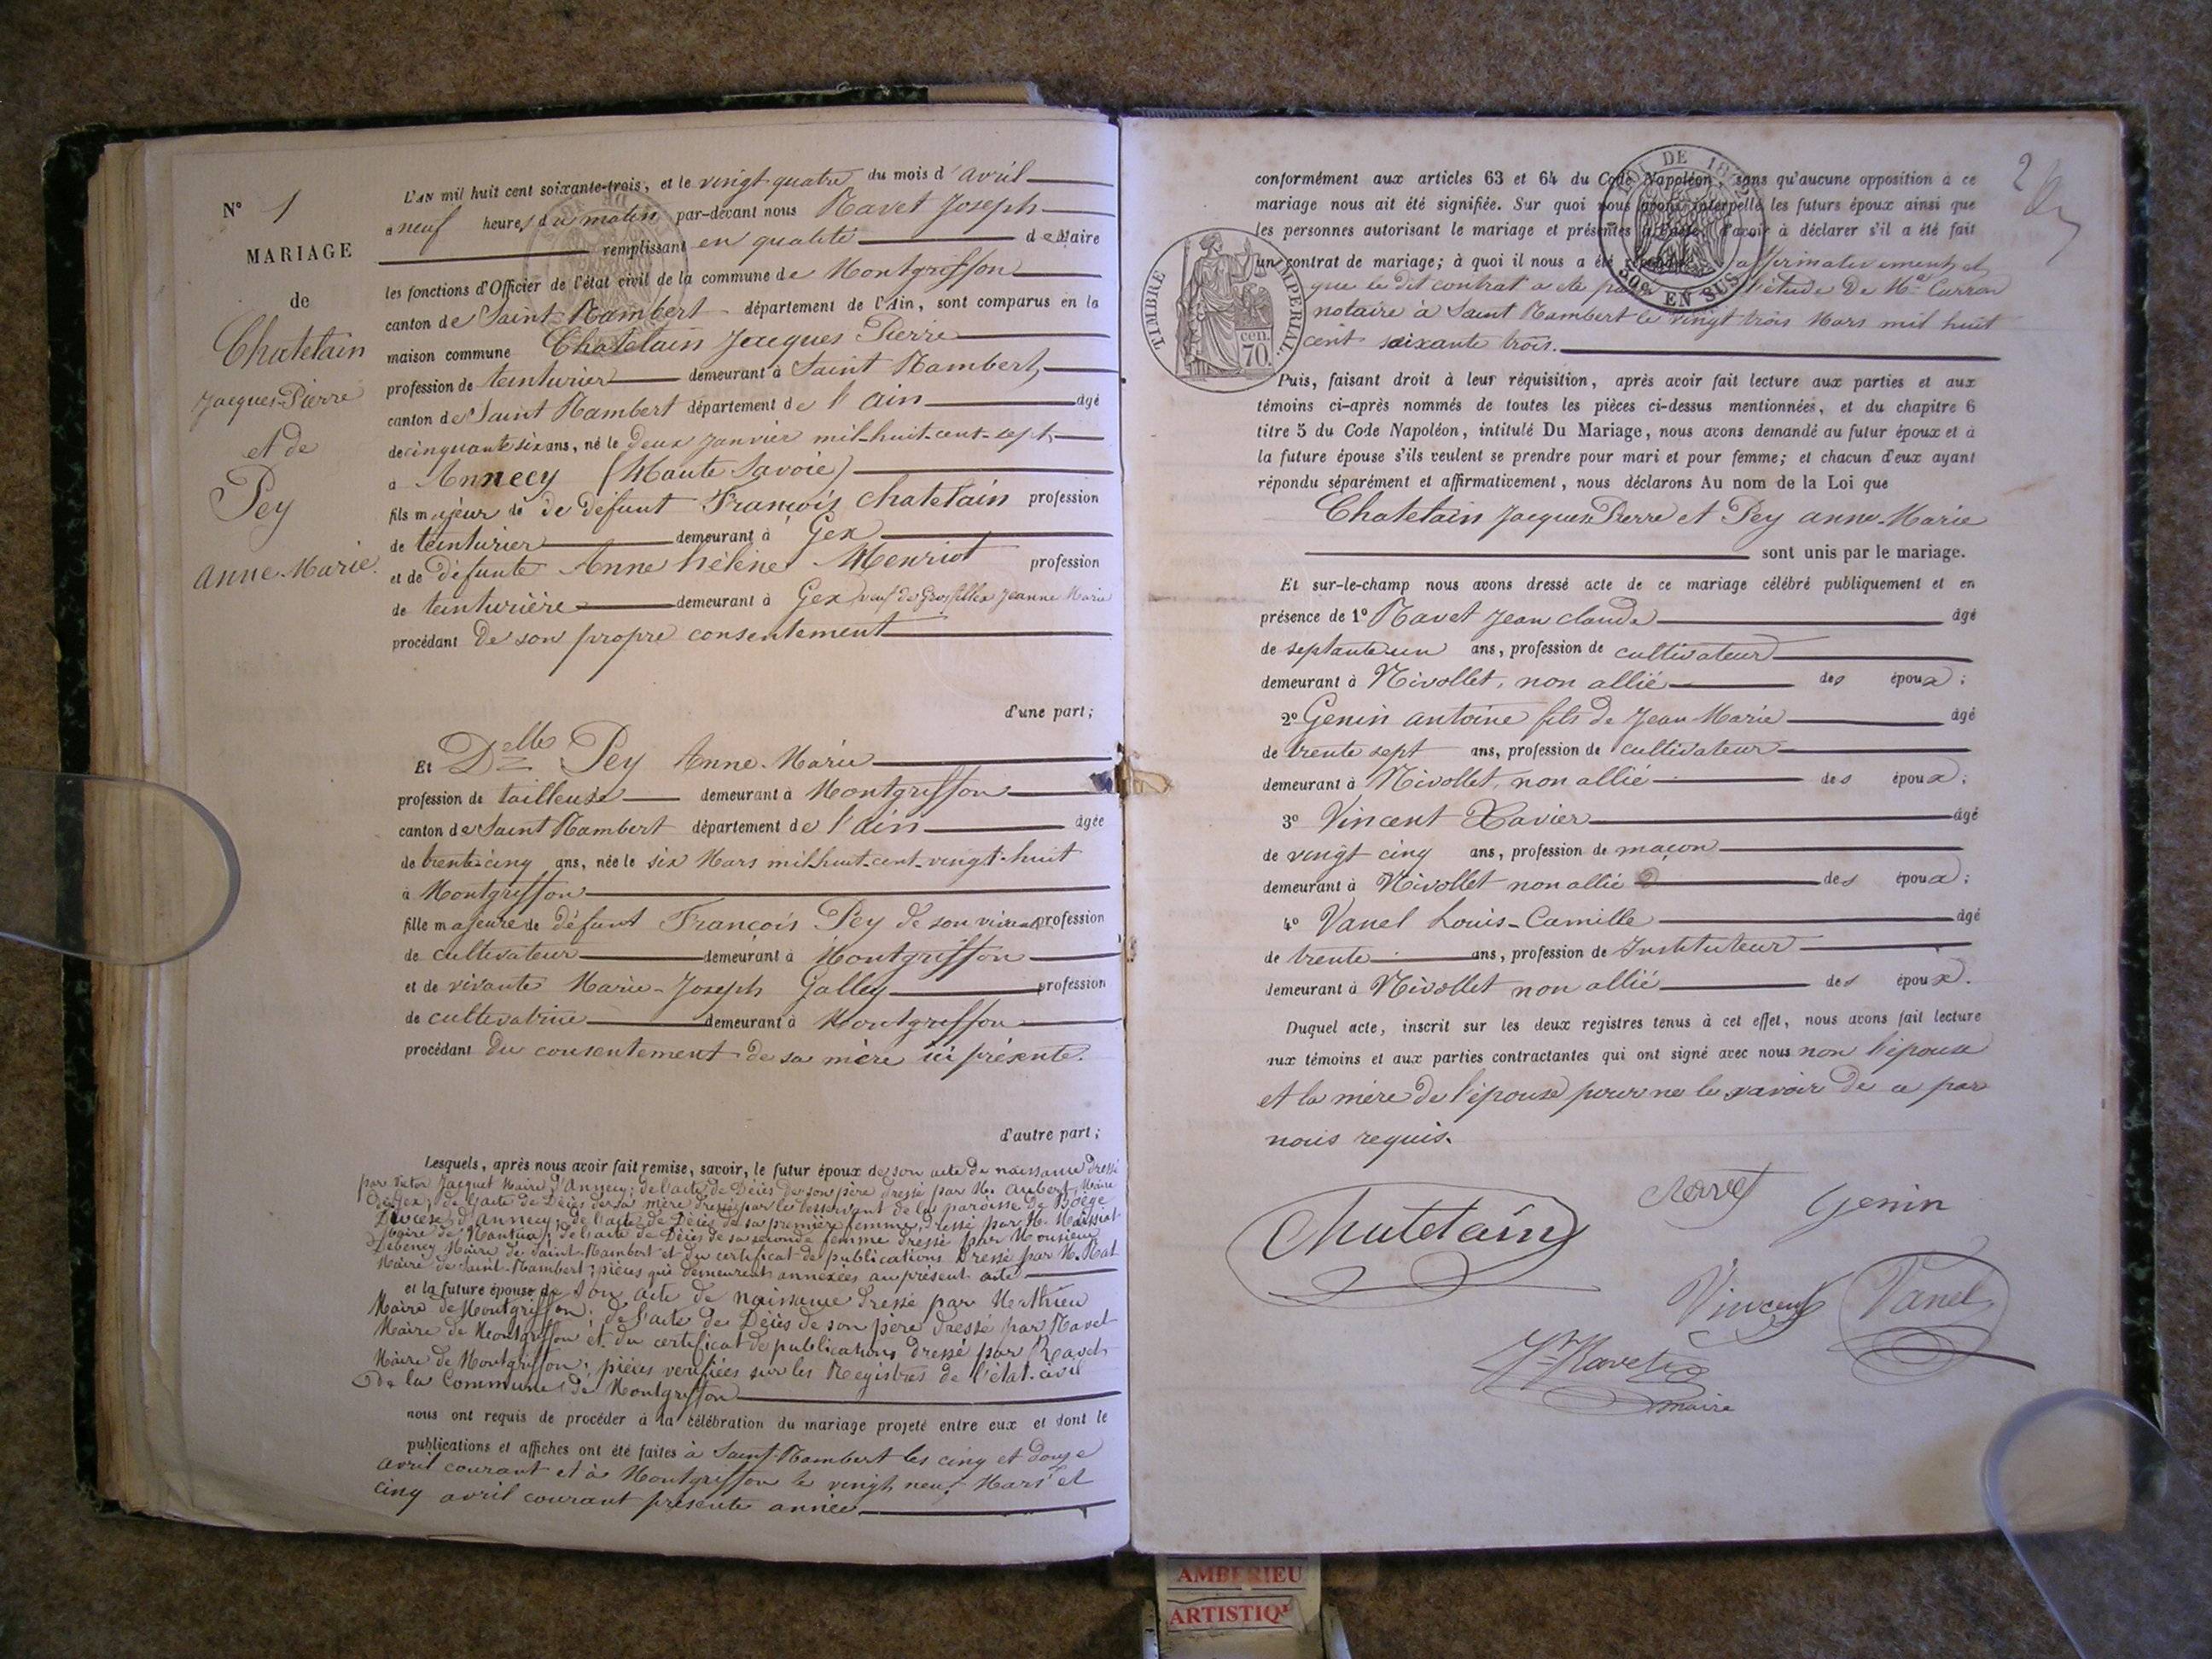 N° 1
MARIAGE
de
Chatelain
Jacques-Pierre
et de
Pey
Anne-Marie
L'AN mil huit cent soixante-trois, et le vingt quatre du mois d'avril
à neuf heures du matin par-devant nous Ravet Joseph
remplissant en qualité de Maire
les fonctions d'Officier de l'état civil de la commune de Montgriffon
canton de Saint-Rambert département de l'Ain, sont comparus en la
maison commune Chatelain Jacques Pierre
profession de teinturier demeurant à Saint Rambert,
canton de Saint Rambert département de l'ain âgé
de cinquante six ans, né le deux janvier mil-huit-cent-sept
à Annecy (Haute Savoie)
fils majeur de de défunt François Chatelain profession
de teinturier demeurant à Gex
et de défunte Anne hélène Henriot profession
de teinturière demeurant à Gex veuf de Grosfillex Jeanne Marie
procédant de son propre consentement
d'une part;
Et Delle Pey Anne-Marie
profession de tailleuse demeurant à Montgriffon
canton de Saint Rambert département de l'ain âgée
de trente-cinq ans, née le six Mars mil-huit-cent-vingt-huit
à Montgriffon
fille majeure de défunt François Pey de son vivant profession
de cultivateur demeurant à Montgriffon
et de vivante Marie-Joseph Galley profession
de cultivatrice demeurant à Montgriffon
procédant du consentement de sa mère ici présente.
d'autre part;
Lesquels, après nous avoir fait remise, savoir, le futur époux de son acte de naissance dressé
par Victor Jacquet Maire d'Annecy; de l'acte de Décès de son père dressé par M. Aubert, Maire
de Gex; de l'acte de Décès de sa mère dressé par le desservant de la paroisse de Boëge
Diocèse d'Annecy; de l'acte de Décès de sa première femme, dressé par M.
Maire de Nantua; de l'acte de Décès de sa seconde femme dressé par Monsieur
Debeney Maire de Saint-Rambert et du certificat de publications Dressé par M.
Maire de Saint-Rambert; pièces qui demeurent annexées au présent acte
et la future épouse de son acte de naissance dressé par
Maire de Montgriffon; de l'acte de Décès de son père dressé par Ravet
Maire de Montgriffon et du certificat de publications dressé par Ravet
Maire de Montgriffon; pièces vérifiées sur les Registres de l'état-civil
de la Commune de Montgriffon
nous ont requis de procéder à la célébration du mariage projeté entre eux et dont le
publications et affiches ont été faites à Saint-Rambert les cinq et douze
avril courant et à Montgriffon le vingt neuf Mars et
cinq avril courant présente année
2
conformément aux articles 63 et 64 du Code Napoléon, sans qu'aucune opposition à ce
mariage nous ait été signifiée. Sur quoi nous avons interpellé les futurs époux ainsi que
les personnes autorisant le mariage et présentes à l'acte, d'avoir à déclarer s'il a été fait
un contrat de mariage; à quoi il nous a été répondu affirmativement et
que le dit contrat a été passé l'étude de Me Carron
notaire à Saint Rambert le vingt trois Mars mil huit
cent soixante trois.
TIMBRE IMPERIAL
70 cen.
LOI DE 1862
50c EN SUS
Puis, faisant droit à leur réquisition, après avoir fait lecture aux parties et aux
témoins ci-après nommés de toutes les pièces ci-dessus mentionnées, et du chapitre 6
titre 5 du Code Napoléon, intitulé Du Mariage, nous avons demandé au futur époux et à
la future épouse s'ils veulent se prendre pour mari et pour femme; et chacun d'eux ayant
répondu séparément et affirmativement, nous déclarons Au nom de la Loi que
Chatelain Jacques Pierre et Pey anne-Marie
sont unis par le mariage.
Et sur-le-champ nous avons dressé acte de ce mariage célébré publiquement et en
présence de 1° Ravet Jean claude âgé
de septante un ans, profession de cultivateur
demeurant à Nivollet, non allié des époux;
2° Genin antoine fils de Jean-Marie âgé
de trente sept ans, profession de cultivateur
demeurant à Nivollet, non allié des époux;
3° Vincent Xavier âgé
de vingt cinq ans, profession de maçon
demeurant à Nivollet non allié des époux;
4° Vanel Louis-Camille âgé
de trente ans, profession de Instituteur
demeurant à Nivollet non allié des époux.
Duquel acte, inscrit sur les deux registres tenus à cet effet, nous avons fait lecture
aux témoins et aux parties contractantes qui ont signé avec nous non l'épouse
et la mère de l'épouse pour ne le savoir de ce par
nous requis.
Chatelain
Ravet
Genin
Vincent
Vanel
Ravet
maire
AMBERIEU
ARTISTIQ